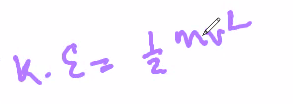 K.ε = 1/2 mv²